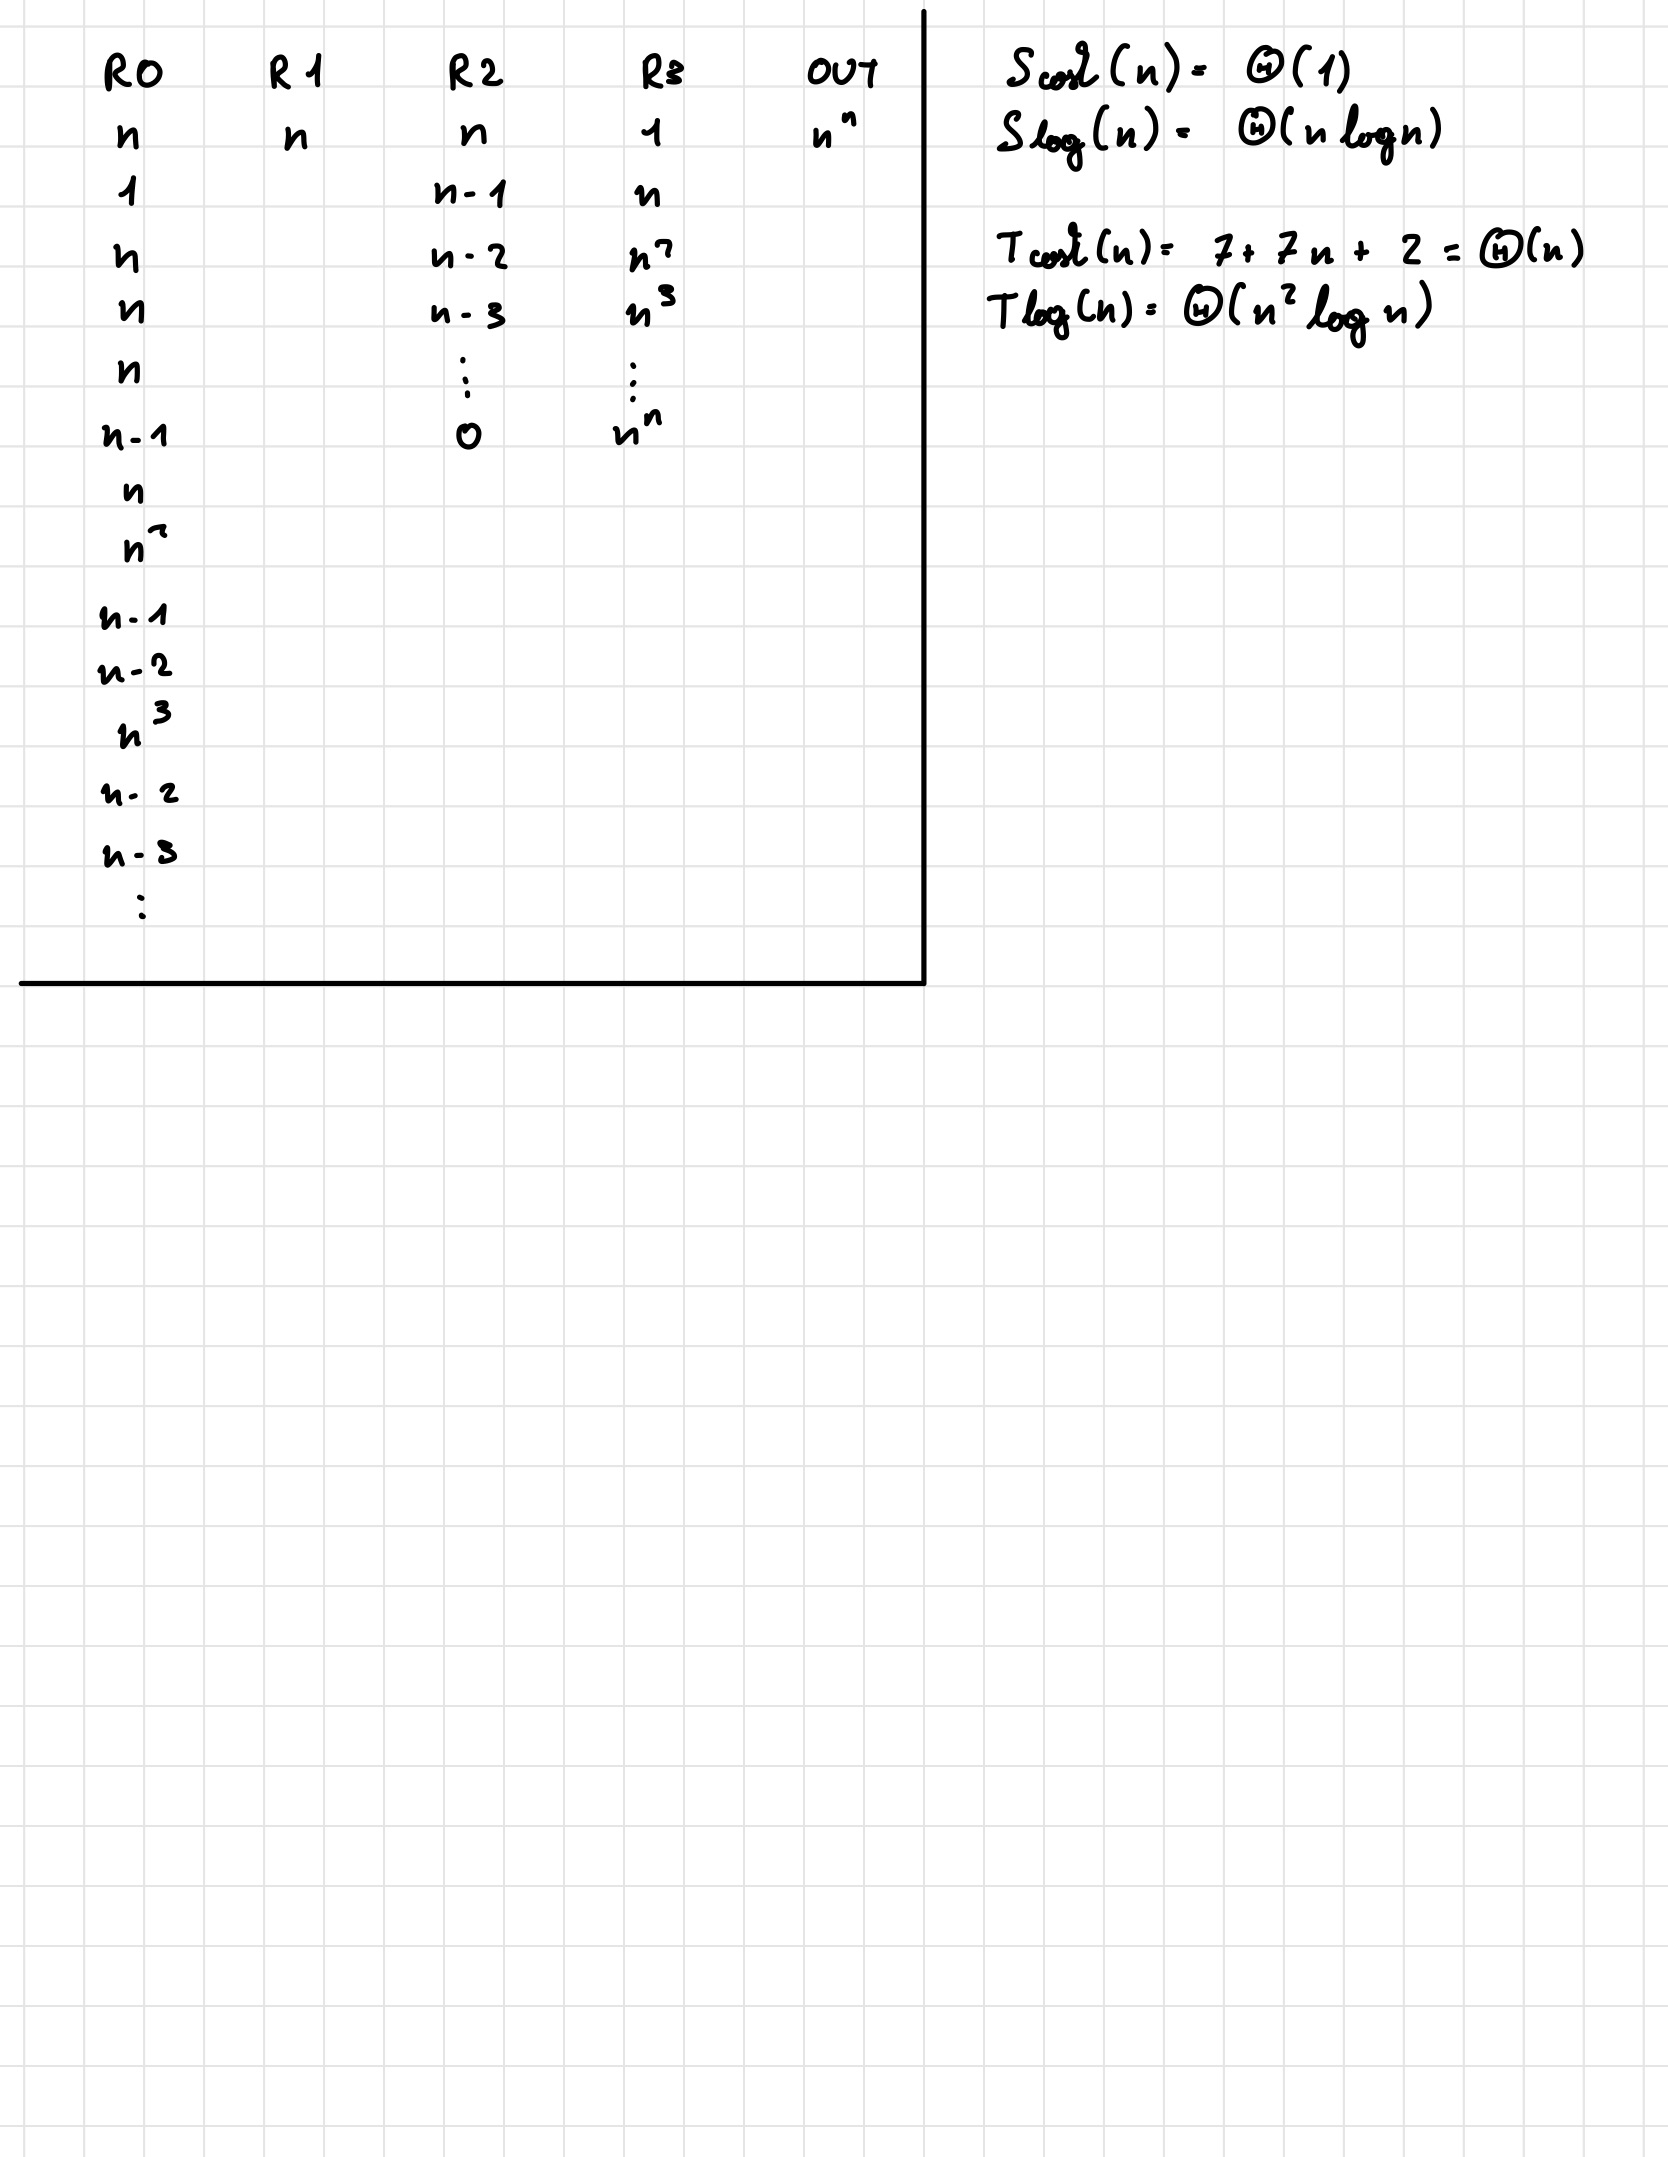 R0 R1 R2 R3 OUT
n n n 1 nⁿ
1 n-1 n
n n-2 n²
n n-3 n³
n ⋮ ⋮
n-1 0 nⁿ
n
n²
n-1
n-2
n³
n-2
n-3
⋮
Scost(n)= Θ(1)
Slog(n)= Θ(n log n)
Tcost(n)= 7+7n+2=Θ(n)
Tlog(n)= Θ(n² log n)